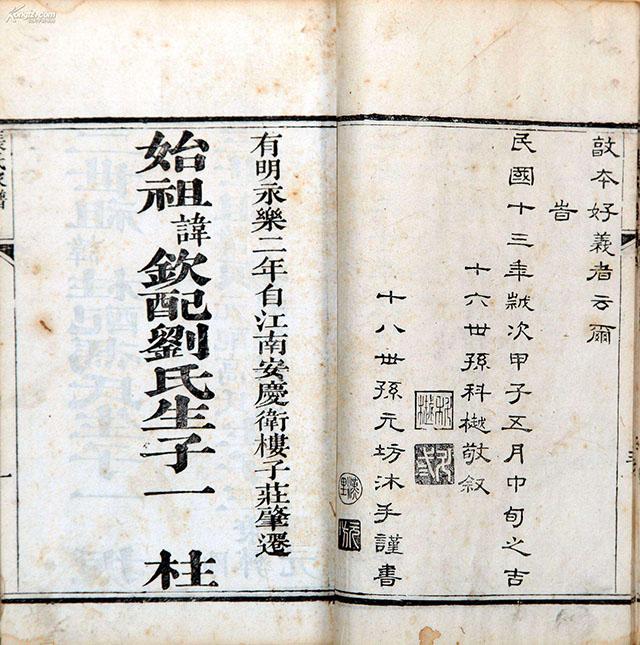 敦本好義者云爾
旹
民國十三年歲次甲子五月中旬之吉
十六世孫科樾敬叙
十八世孫元坊沐手謹書
有明永樂二年自江南安慶衛樓子莊肇遷
始祖諱欽配劉氏生子一 柱
一